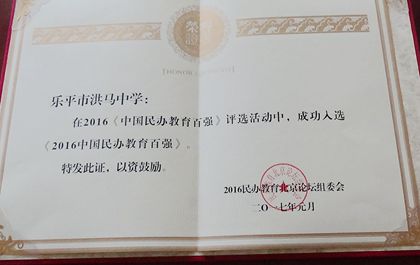 荣誉
乐平市洪马中学：
在2016《中国民办教育百强》评选活动中，成功入选
《2016中国民办教育百强》。
特发此证，以资鼓励。
2016民办教育北京论坛组委会
二〇一七年元月